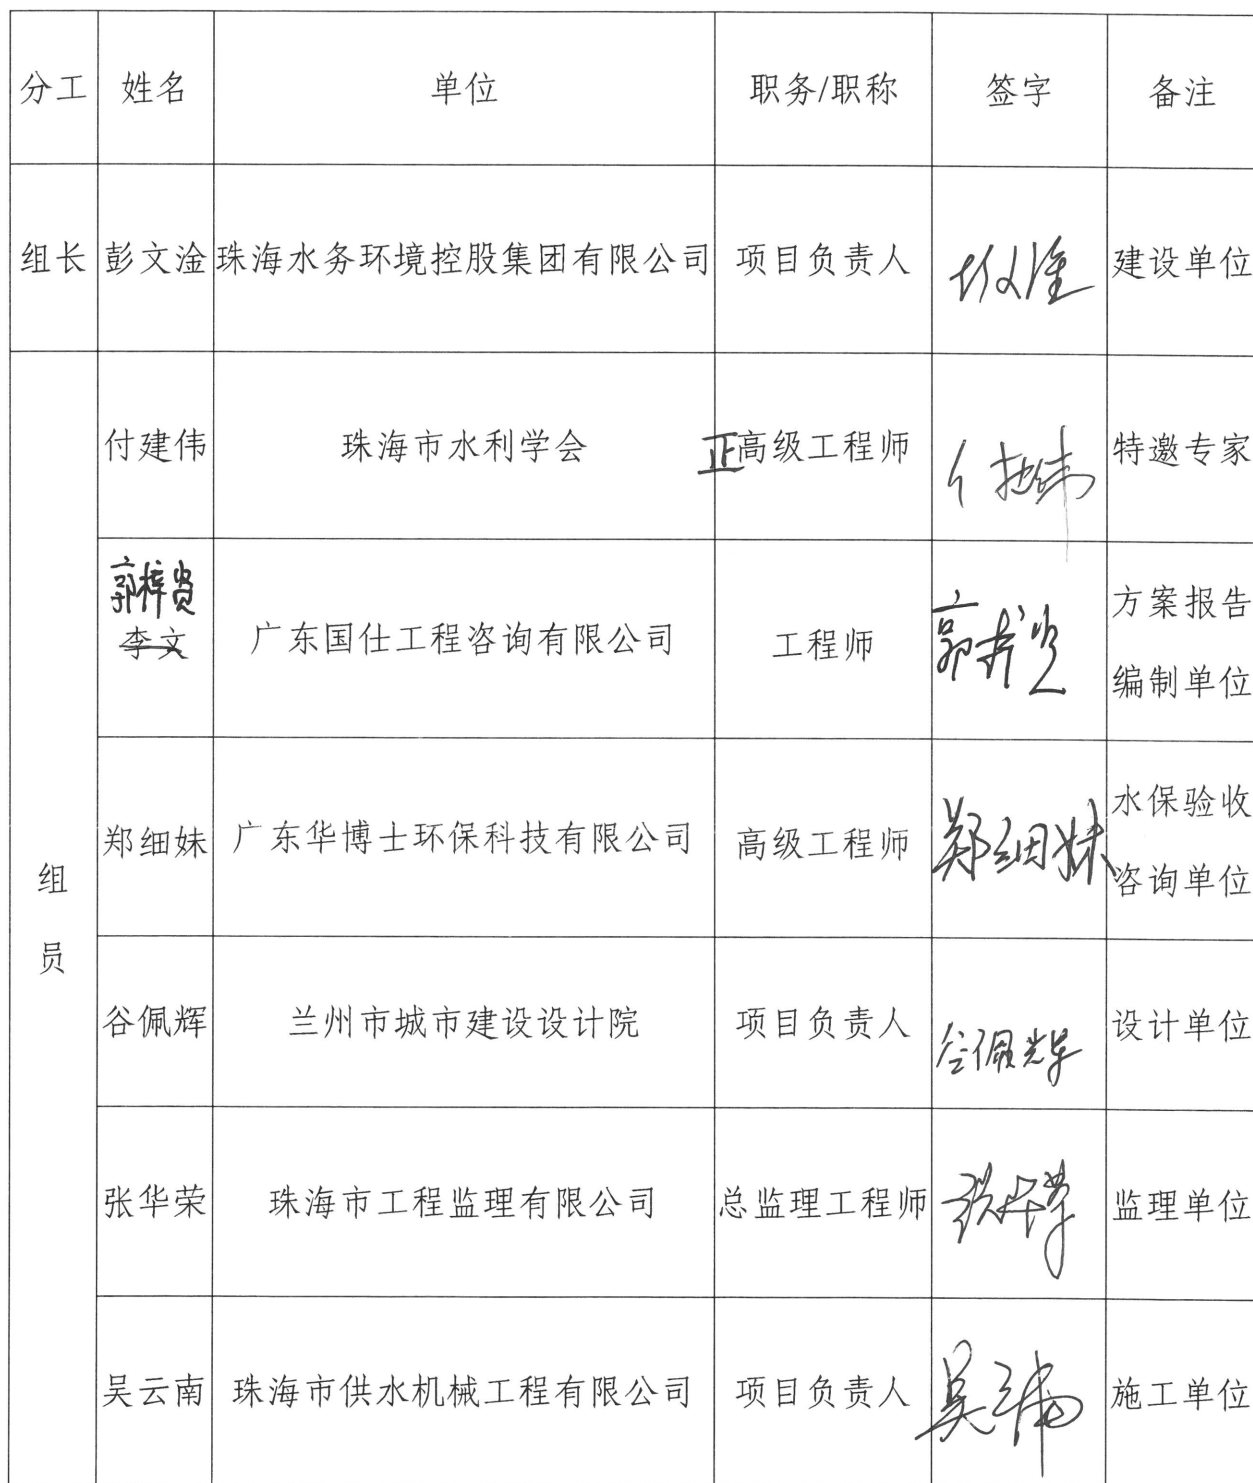 分工 姓名 单位 职务/职称 签字 备注
组长 彭文淦 珠海水务环境控股集团有限公司 项目负责人 建设单位
组
员
付建伟 珠海市水利学会 正高级工程师 特邀专家
郭梓贤
李文 广东国仕工程咨询有限公司 工程师 郭梓贤 方案报告
编制单位
郑细妹 广东华博士环保科技有限公司 高级工程师 郑细妹 水保验收
咨询单位
谷佩辉 兰州市城市建设设计院 项目负责人 谷佩辉 设计单位
张华荣 珠海市工程监理有限公司 总监理工程师 张华荣 监理单位
吴云南 珠海市供水机械工程有限公司 项目负责人 吴云南 施工单位